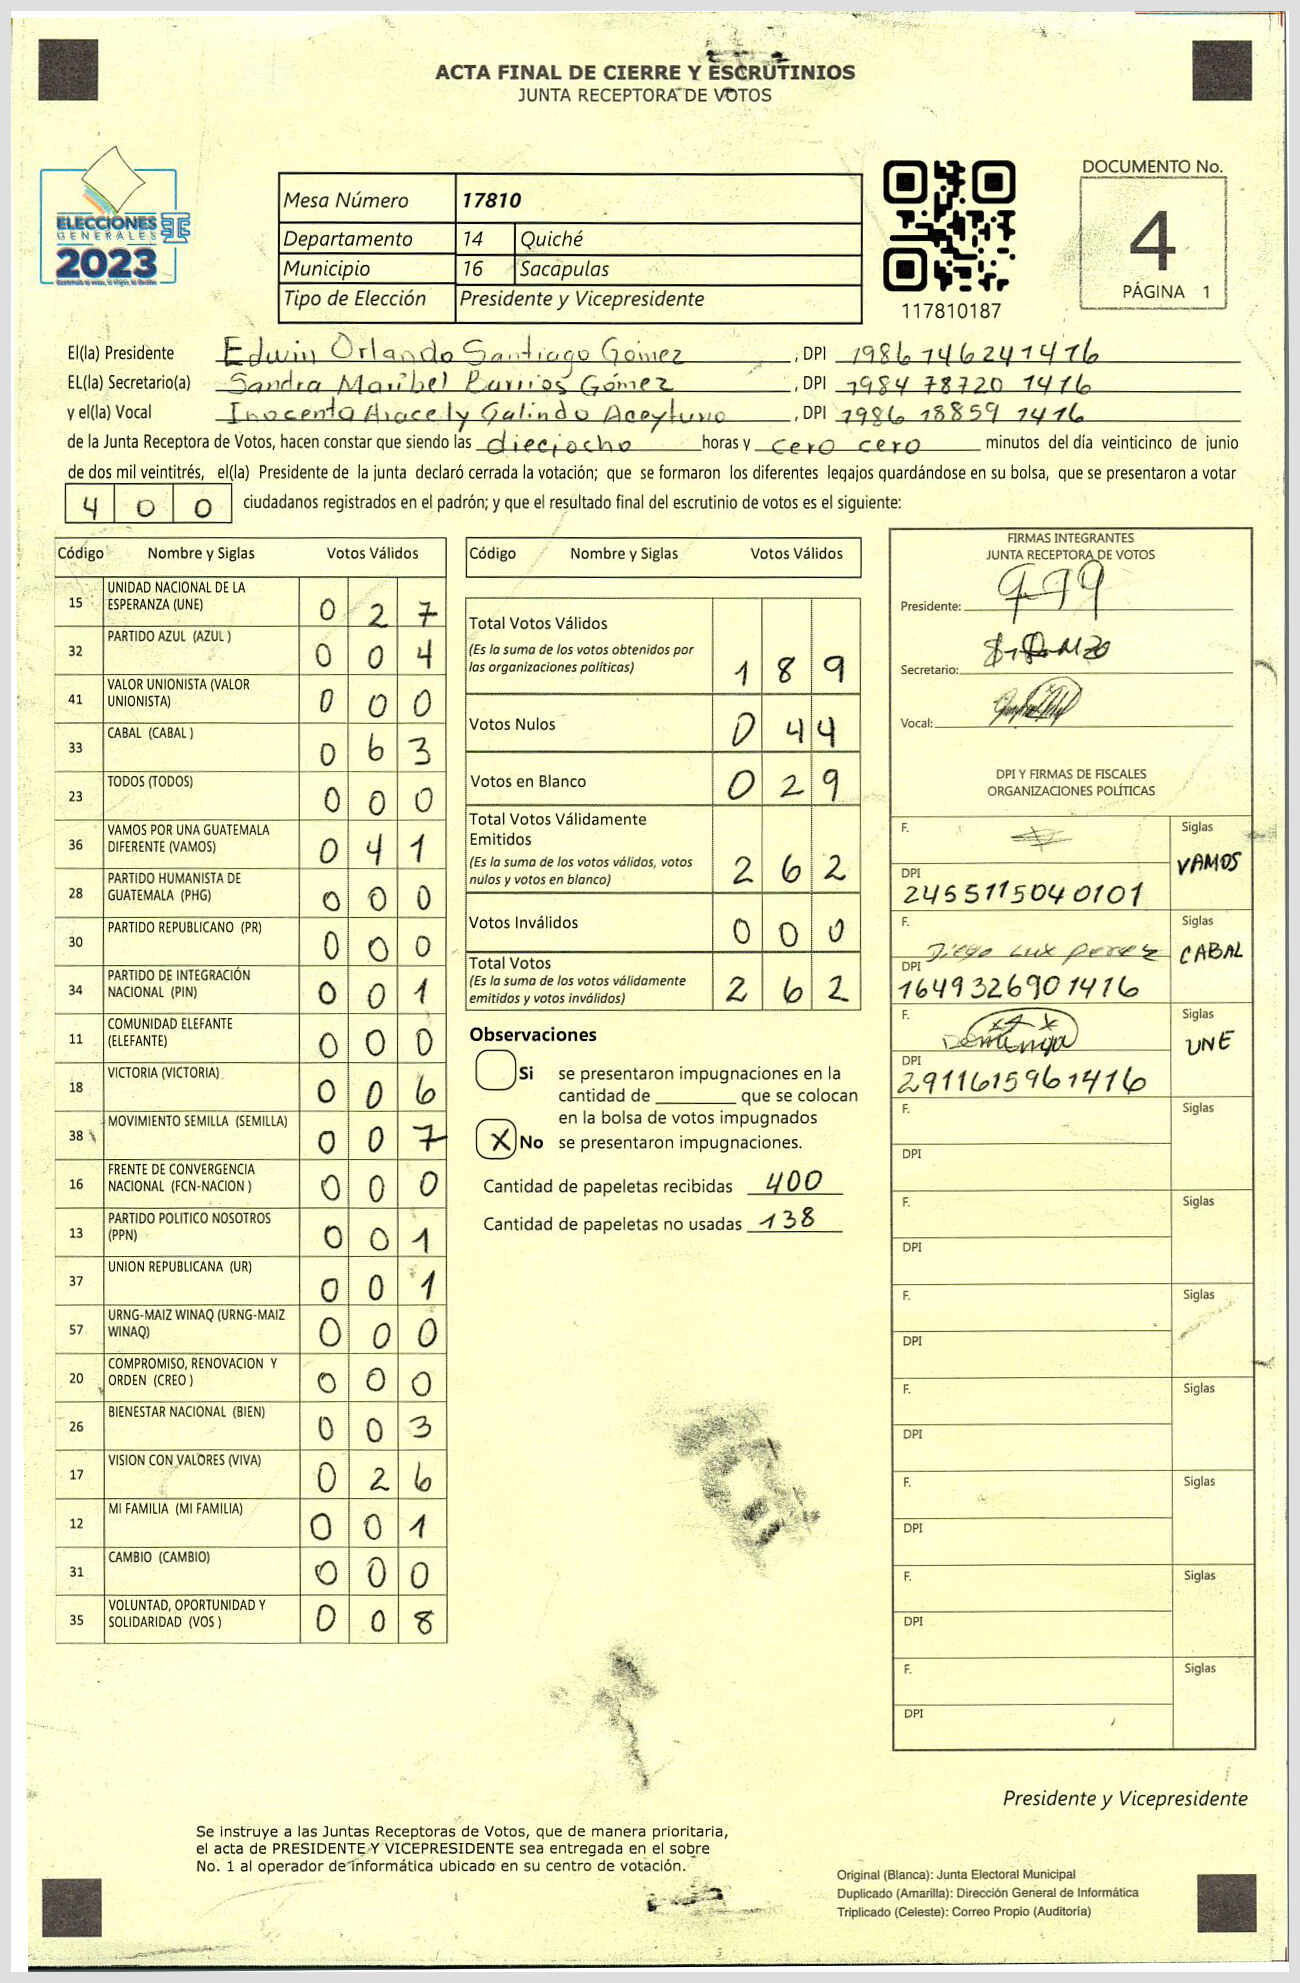 ACTA FINAL DE CIERRE Y ESCRUTINIOS
JUNTA RECEPTORA DE VOTOS
ELECCIONES
GENERALES
2023
Mesa Número 17810
Departamento 14 Quiché
Municipio 16 Sacapulas
Tipo de Elección Presidente y Vicepresidente
117810187
DOCUMENTO No.
4
PÁGINA 1
El(la) Presidente Edwin Orlando Santiago Gómez, DPI 1986146241416
EL(la) Secretario(a) Sandra Maribel Barrios Gómez, DPI 1984 78720 1416
y el(la) Vocal Inocenta Aracely Galindo Aceytuno, DPI 1986 18859 1416
de la Junta Receptora de Votos, hacen constar que siendo las dieciocho horas y cero cero minutos del día veinticinco de junio
de dos mil veintitrés, el(la) Presidente de la junta declaró cerrada la votación; que se formaron los diferentes legajos quardándose en su bolsa, que se presentaron a votar
400 ciudadanos registrados en el padrón; y que el resultado final del escrutinio de votos es el siguiente:
Código Nombre y Siglas Votos Válidos
15 UNIDAD NACIONAL DE LA ESPERANZA (UNE) 0 2 7
32 PARTIDO AZUL (AZUL ) 0 0 4
41 VALOR UNIONISTA (VALOR UNIONISTA) 0 0 0
33 CABAL (CABAL ) 0 6 3
23 TODOS (TODOS) 0 0 0
36 VAMOS POR UNA GUATEMALA DIFERENTE (VAMOS) 0 4 1
28 PARTIDO HUMANISTA DE GUATEMALA (PHG) 0 0 0
30 PARTIDO REPUBLICANO (PR) 0 0 0
34 PARTIDO DE INTEGRACIÓN NACIONAL (PIN) 0 0 1
11 COMUNIDAD ELEFANTE (ELEFANTE) 0 0 0
18 VICTORIA (VICTORIA) 0 0 6
38 MOVIMIENTO SEMILLA (SEMILLA) 0 0 7
16 FRENTE DE CONVERGENCIA NACIONAL (FCN-NACION ) 0 0 0
13 PARTIDO POLITICO NOSOTROS (PPN) 0 0 1
37 UNION REPUBLICANA (UR) 0 0 1
57 URNG-MAIZ WINAQ (URNG-MAIZ WINAQ) 0 0 0
20 COMPROMISO, RENOVACION Y ORDEN (CREO ) 0 0 0
26 BIENESTAR NACIONAL (BIEN) 0 0 3
17 VISION CON VALORES (VIVA) 0 2 6
12 MI FAMILIA (MI FAMILIA) 0 0 1
31 CAMBIO (CAMBIO) 0 0 0
35 VOLUNTAD, OPORTUNIDAD Y SOLIDARIDAD (VOS ) 0 0 8
Código Nombre y Siglas Votos Válidos
Total Votos Válidos
(Es la suma de los votos obtenidos por
las organizaciones políticas) 1 8 9
Votos Nulos 0 4 4
Votos en Blanco 0 2 9
Total Votos Válidamente
Emitidos
(Es la suma de los votos válidos, votos
nulos y votos en blanco) 2 6 2
Votos Inválidos 0 0 0
Total Votos
(Es la suma de los votos válidamente
emitidos y votos inválidos) 2 6 2
Observaciones
Si se presentaron impugnaciones en la
cantidad de ________ que se colocan
en la bolsa de votos impugnados
X No se presentaron impugnaciones.
Cantidad de papeletas recibidas 400
Cantidad de papeletas no usadas 138
FIRMAS INTEGRANTES
JUNTA RECEPTORA DE VOTOS
Presidente:
Secretario:
Vocal:
DPI Y FIRMAS DE FISCALES
ORGANIZACIONES POLÍTICAS
F. Siglas
VAMOS
DPI
2455115040101
F. Diego Lux Perez Siglas
CABAL
DPI
1649326901416
F. Dominga Siglas
UNE
DPI
2911615961416
F. Siglas
DPI
F. Siglas
DPI
F. Siglas
DPI
F. Siglas
DPI
F. Siglas
DPI
F. Siglas
DPI
F. Siglas
DPI
Presidente y Vicepresidente
Se instruye a las Juntas Receptoras de Votos, que de manera prioritaria,
el acta de PRESIDENTE Y VICEPRESIDENTE sea entregada en el sobre
No. 1 al operador de informática ubicado en su centro de votación.
Original (Blanca): Junta Electoral Municipal
Duplicado (Amarilla): Dirección General de Informática
Triplicado (Celeste): Correo Propio (Auditoría)